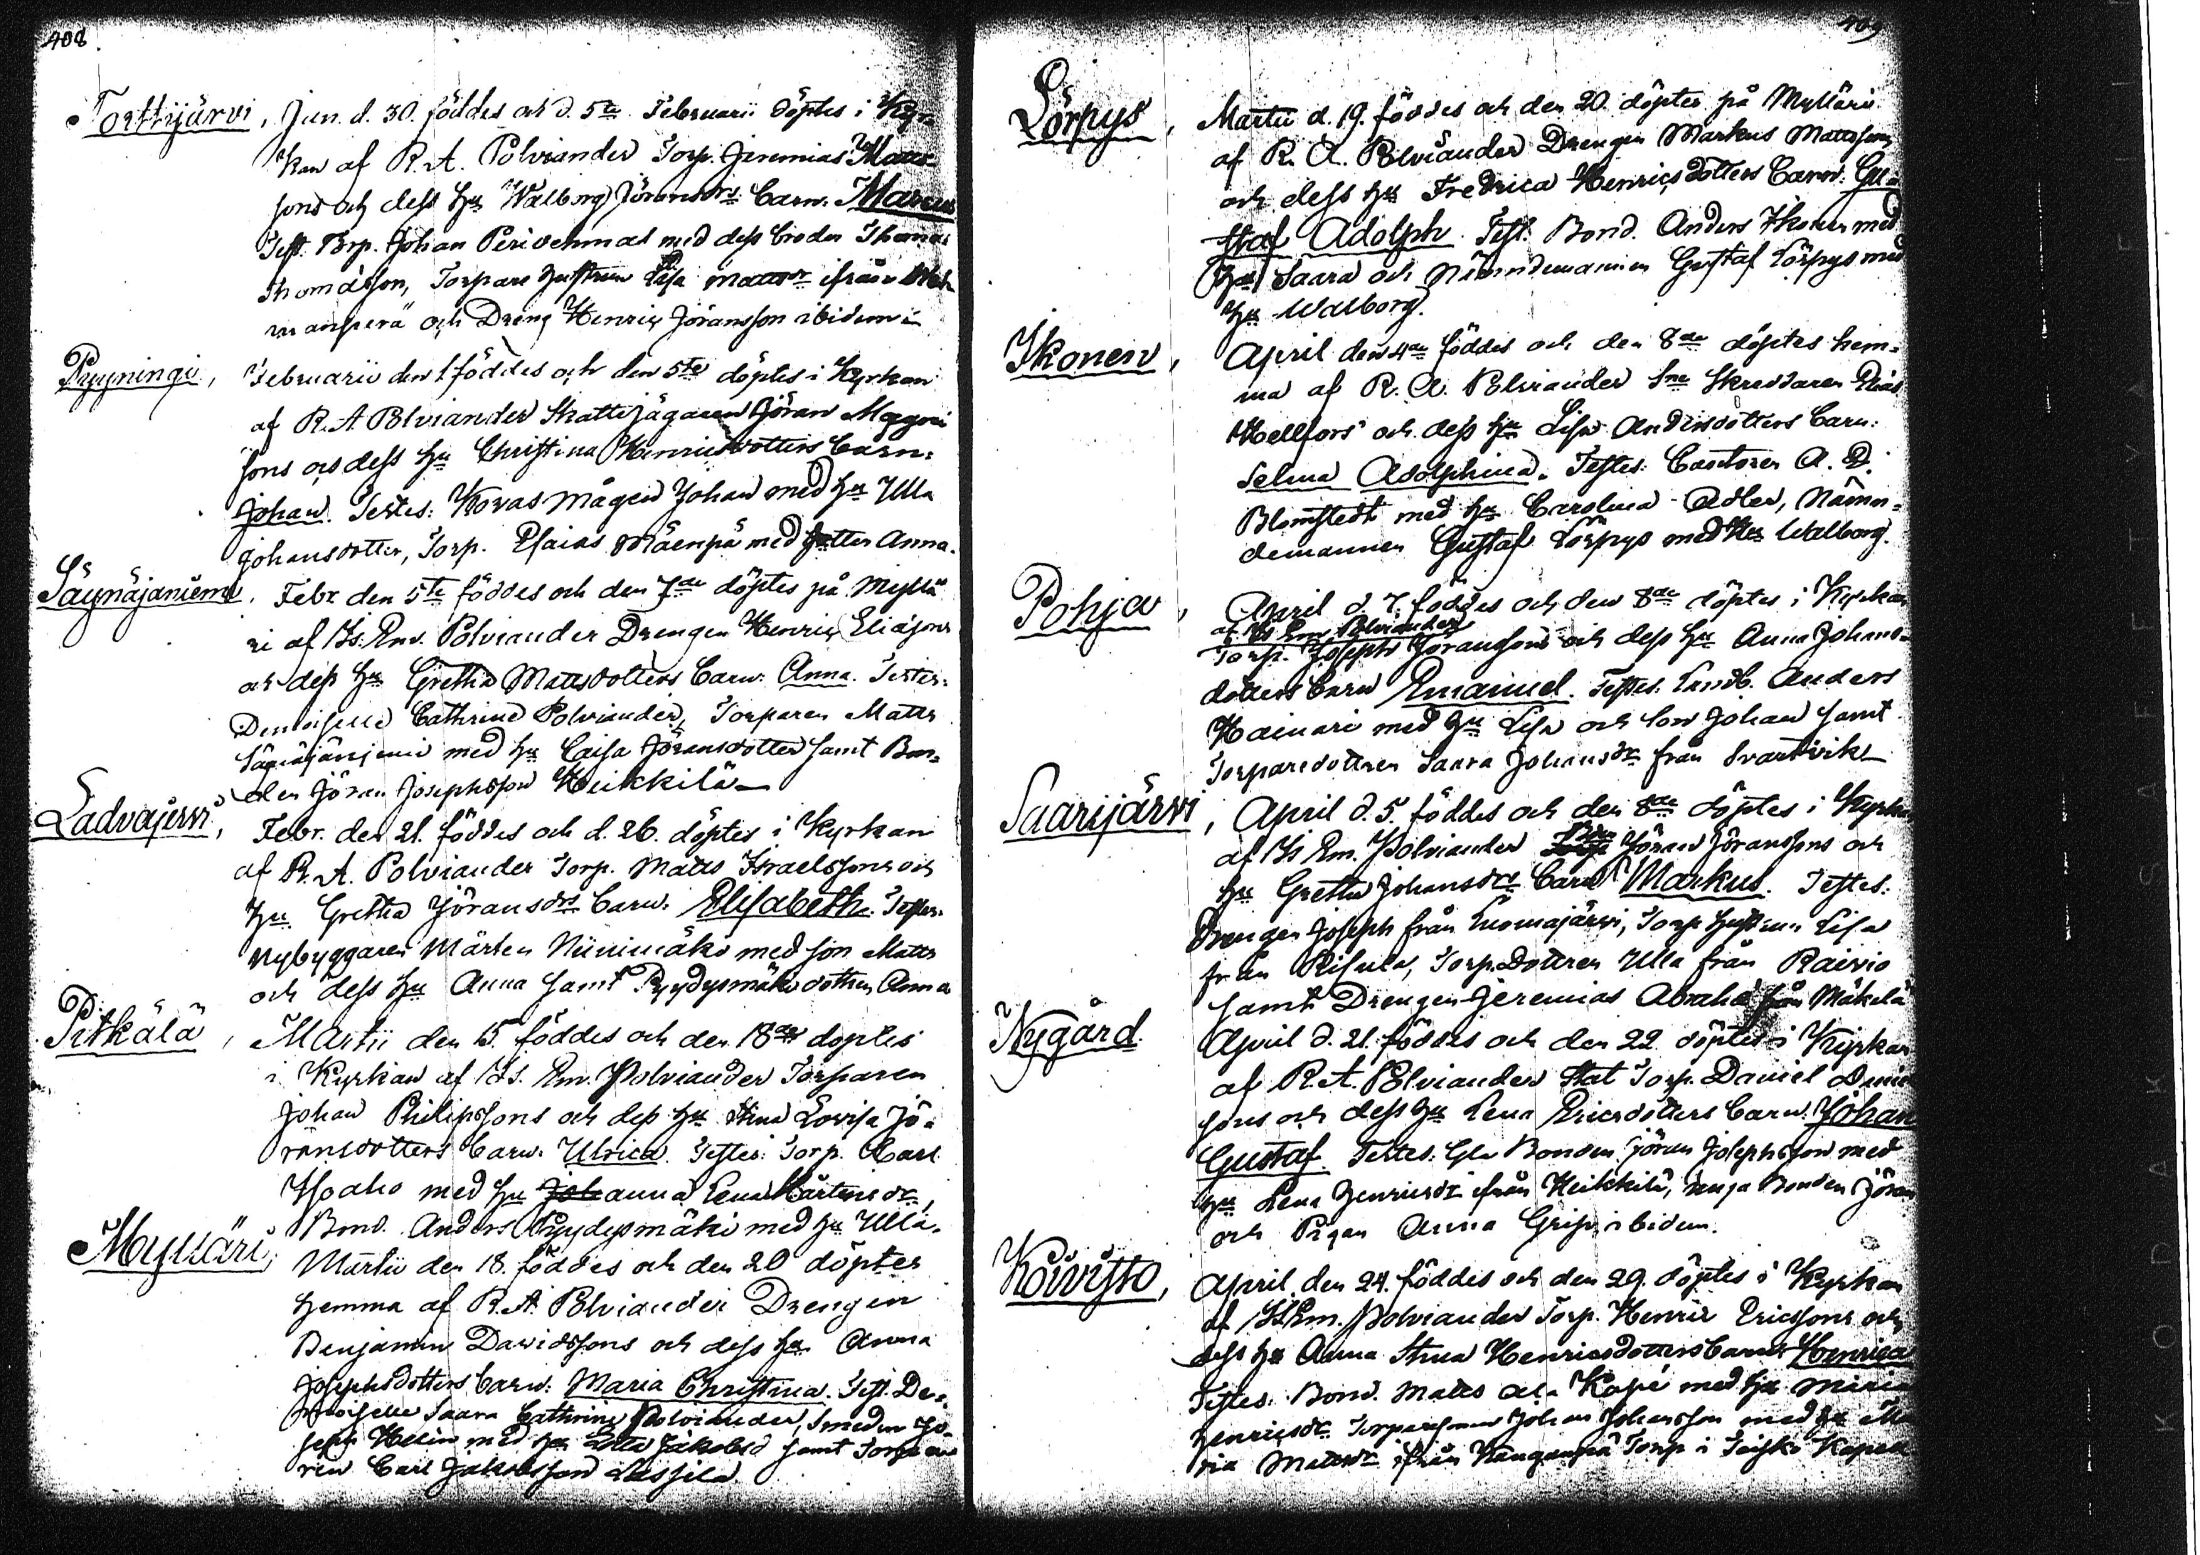 408.
Torttijärvi, Jan. d. 30. föddes och d. 5te Februarii döptes i Kyr-
kan af R. A. Polviander Torp. Jeremias Matts-
sons och dess hu Walborg Jöransdrs Barn. Marcus
Test. Torp. Johan med dess broder Thomas
Thomasson, Torpare hustrun Lisa Mattsdr ifrån
och Dreng Henric Jöransson ibidem
Pyyningi, Februarii den 1 föddes och den 5te döptes i Kyrkan
af R. A. Polviander Skattejägaren Jöran
sons och dess hu Christina Henricsdotters barn:
Johan. Testes: Kovas mågen Johan med hu Ulla
Johansdotter, Torp. Esaias Mäenpä med dotter Anna.
Säynäjäniemi. Febr. den 5te föddes och den 7de döptes på Myllä
ri af Hs. Em. Polviander Drengen Henric Eliæsons
och dess hu Gretha Mattsdotters Barn. Anna. Testes:
Demoiselle Cathrine Polviander, Torparen Matts
Säynäjäniemi med hu Caisa Jöransdotter samt Bon-
den Jöran Josephsson Heikkilä
Ladvajerwi, Febr. den 21. föddes och d. 26. döptes i Kyrkan
af R. A. Polviander Torp. Matts Israelssons och
hu Gretha Jöransdrs Barn. Elisabeth. Testes:
Nybyggaren Mårten Niinimäki med son Matts
och dess hu Anna samt Pyydysmäki dottren Anna
Pitkälä, Martii den 15. föddes och den 18de döptes
i Kyrkan af Hs. Em. Polviander Torparen
Johan Philipssons och dess hu Stina Lovisa Jö-
ransdotters barn. Ulrica. Testes: Torp. Carl
Isoaho med hu Johanna Lena Mårtensdr,
Bond. Anders Pyydysmäki med hu Ulla.
Mylläri, Martii den 18. föddes och den 20 döptes
hemma af R. A. Polviander Drengen
Benjamin Davidssons och dess hu Anna
Josephsdotters barn. Maria Christina. Test. De-
moiselle Saara Cathrine Polviander, Smeden Jo-
seph Helin med hu Lotta Jakobsd samt Torpa
ren Carl Jakobsson Lassila

409
Lörpys, Martii d. 19. föddes och den 20. döptes på Mylläri
af R. A. Polviander Drengen Markus Mattssons
och dess hu Fredrica Henricsdotters Barn. Gu-
staf Adolph. Test. Bond. Anders Ikonen med
hu Saara och Nämndemannen Gustaf Lörpys med
hu Walborg.
Ikonen, April den 4de föddes och den 8de döptes hem-
ma af R. A. Polviander Sne Skreddaren Elias
Hellfors och dess hu Lisa Andersdotters Barn:
Selma Adolphina. Testes: Cantoren A. D.
Blomstedt med hu Carolina Adler, Nämn-
demannen Gustaf Lörpys med Hu Walborg.
Pohja, April d. 7. föddes och den 8de döptes i Kyrkan
af Hs Em. Polviander
Torp. Joseph Jöranssons och dess hu Anna Johans-
dotters barn Emanuel. Testes. Landb. Anders
Hainari med hu Lisa och son Johan samt
Torparedottren Saara Johansdr från Svartvik
Saarijärvi, April d. 5. föddes och den 8de döptes i Kyrkan
af Hs Em. Polviander Jöran Jöranssons och
hu Gretha Johansdrs Barn Markus. Testes.
Drengen Joseph från Luomajärvi, Torp. hustrun Lisa
från Risula, Torp. Dottren Ulla från Raivio
samt Drengen Jeremias Abraha från Mäkelä
Nygård. April d. 21. föddes och den 22 döptes i Kyrkan
af R. A. Polviander Stat Torp. Daniel
sons och dess hu Lena Ericsdotters Barn. Johan
Gustaf. Testes. Gla Bonden Jöran Josephsson med
hu Lena Henricsdr ifrån Heikkilä, unga Bonden Jöran
och Pigan Anna Grip ibidem.
Koivisto, April. den 24. föddes och den 29. döptes i Kyrkan
af Hs Em. Polviander Torp. Henric Ericssons och
dess hu Anna Stina Henricsdotters Barn Henrica
Testes. Bond. Matts Kapé med hu Maria
Henricsdr Torparsonen Johan Johansson med hu Ma
ria Mattsdr ifrån Kangaspä Torp i Kapell
KODAK SAFETY